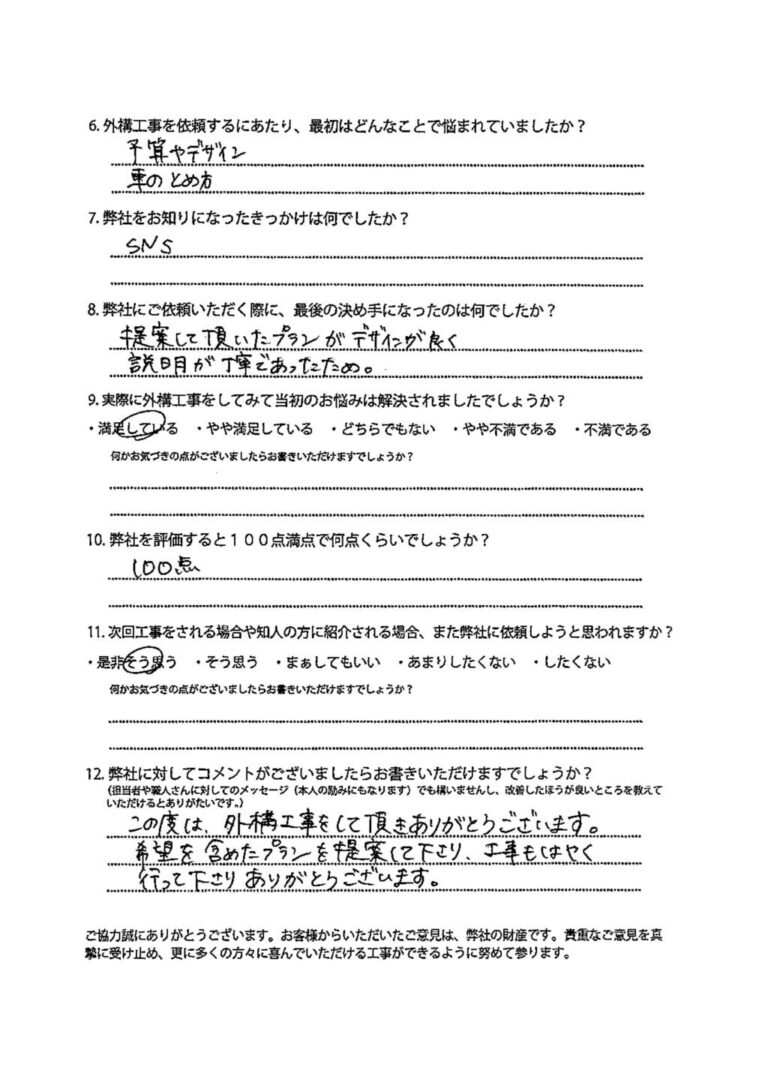 6. 外構工事を依頼するにあたり、最初はどんなことで悩まれていましたか？
予算やデザイン
車のとめ方
7. 弊社をお知りになったきっかけは何でしたか？
SNS
8. 弊社にご依頼いただく際に、最後の決め手になったのは何でしたか？
提案して頂いたプランがデザインが良く
説明が丁寧であったため。
9. 実際に外構工事をしてみて当初のお悩みは解決されましたでしょうか？
・満足している　・やや満足している　・どちらでもない　・やや不満である　・不満である
何かお気づきの点がございましたらお書きいただけますでしょうか？
10. 弊社を評価すると１００点満点で何点くらいでしょうか？
100点
11. 次回工事をされる場合や知人の方に紹介される場合、また弊社に依頼しようと思われますか？
・是非そう思う　・そう思う　・まぁしてもいい　・あまりしたくない　・したくない
何かお気づきの点がございましたらお書きいただけますでしょうか？
12. 弊社に対してコメントがございましたらお書きいただけますでしょうか？
（担当者や職人さんに対してのメッセージ（本人の励みにもなります）でも構いませんし、改善したほうが良いところを教えて
いただけるとありがたいです。）
この度は、外構工事をして頂きありがとうございます。
希望を含めたプランを提案して下さり、工事もはやく
行って下さりありがとうございます。
ご協力誠にありがとうございます。お客様からいただいたご意見は、弊社の財産です。貴重なご意見を真
摯に受け止め、更に多くの方々に喜んでいただける工事ができるように努めて参ります。